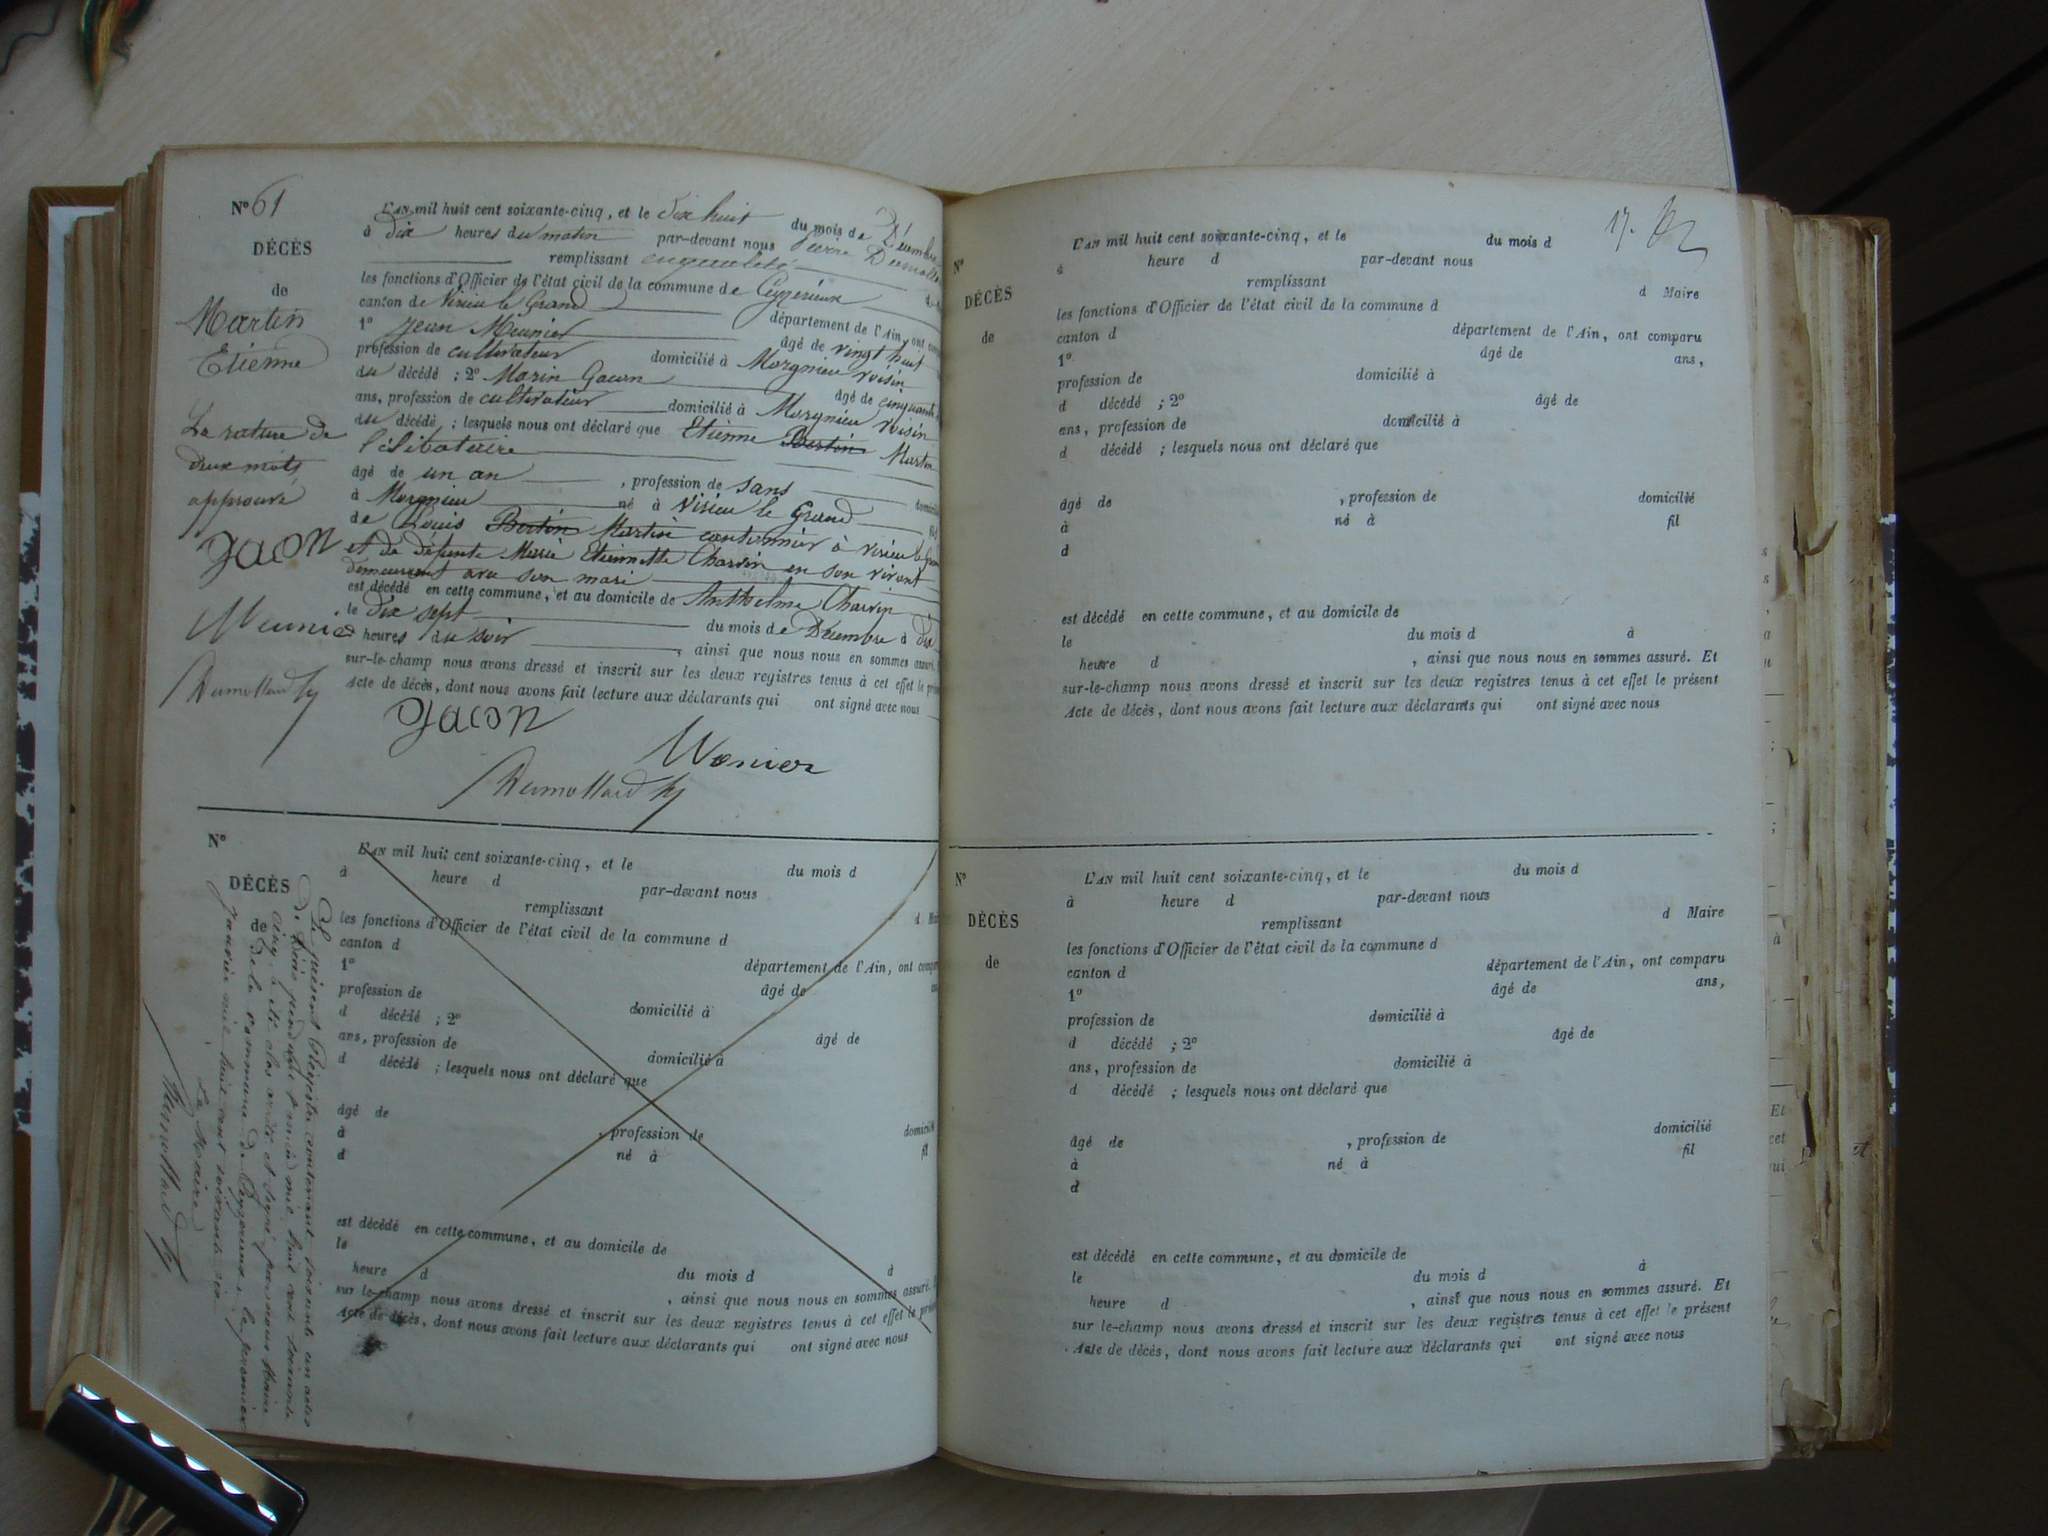 N° 61
DÉCÈS
de
Martin
Etienne
La rature de
deux mots
approuvé
Jacon
Meunier
Dumollard
L'AN mil huit cent soixante-cinq, et le dix huit du mois de Décembre
à dix heures du matin par-devant nous
remplissant
les fonctions d'Officier de l'état civil de la commune de Ceyzerieux
canton de Virieu le Grand département de l'Ain, ont
1° Jean Meunier âgé de vingt huit
profession de cultivateur domicilié à Morgnieu voisin
du décédé ; 2° Marin âgé de cinquante
ans, profession de cultivateur domicilié à Morgnieu voisin
du décédé ; lesquels nous ont déclaré que Etienne Bertin Martin
Célibataire
âgé de un an , profession de sans
à Morgnieu né à Virieu le Grand
de Louis Bertin Martin cantonnier à Virieu le
et de défunte Marie Etiennette Charvin en son vivant
demeurant avec son mari
est décédé en cette commune, et au domicile de Anthelme Charvin
le dix sept du mois de Décembre à dix
heures du soir , ainsi que nous nous en sommes assuré.
sur-le-champ nous avons dressé et inscrit sur les deux registres tenus à cet effet le
Acte de décès, dont nous avons fait lecture aux déclarants qui ont signé avec nous
Jacon
Monier
Dumollard
N°
DÉCÈS
de
Le présent Registre contenant soixante un actes
de Décès pendant l'année mil huit cent soixante
cinq, a été clos arrêté et signé par nous Maire
de la commune de Ceyzerieux, le premier
janvier mil huit cent soixante six.
Le Maire
Dumollard
L'AN mil huit cent soixante-cinq, et le du mois d
à heure d par-devant nous
remplissant d
les fonctions d'Officier de l'état civil de la commune d
canton d département de l'Ain, ont
1° âgé de
profession de domicilié à
d décédé ; 2° âgé de
ans, profession de domicilié à
d décédé ; lesquels nous ont déclaré que
âgé de , profession de
à né à fil
d
est décédé en cette commune, et au domicile de
le du mois d à
heure d , ainsi que nous nous en sommes assuré.
sur le-champ nous avons dressé et inscrit sur les deux registres tenus à cet effet le
Acte de décès, dont nous avons fait lecture aux déclarants qui ont signé avec nous
17.
N°
DÉCÈS
de
L'AN mil huit cent soixante-cinq, et le du mois d
à heure d par-devant nous
remplissant d Maire
les fonctions d'Officier de l'état civil de la commune d
canton d département de l'Ain, ont comparu
1° âgé de ans,
profession de domicilié à
d décédé ; 2° âgé de
ans, profession de domicilié à
d décédé ; lesquels nous ont déclaré que
âgé de , profession de domicilié
à né à fil
d
est décédé en cette commune, et au domicile de
le du mois d à
heure d , ainsi que nous nous en sommes assuré. Et
sur-le-champ nous avons dressé et inscrit sur les deux registres tenus à cet effet le présent
Acte de décès, dont nous avons fait lecture aux déclarants qui ont signé avec nous
N°
DÉCÈS
de
L'AN mil huit cent soixante-cinq, et le du mois d
à heure d par-devant nous
remplissant d Maire
les fonctions d'Officier de l'état civil de la commune d
canton d département de l'Ain, ont comparu
1° âgé de ans,
profession de domicilié à
d décédé ; 2° âgé de
ans, profession de domicilié à
d décédé ; lesquels nous ont déclaré que
âgé de , profession de domicilié
à né à fil
d
est décédé en cette commune, et au domicile de
le du mois d à
heure d , ainsi que nous nous en sommes assuré. Et
sur le-champ nous avons dressé et inscrit sur les deux registres tenus à cet effet le présent
Acte de décès, dont nous avons fait lecture aux déclarants qui ont signé avec nous